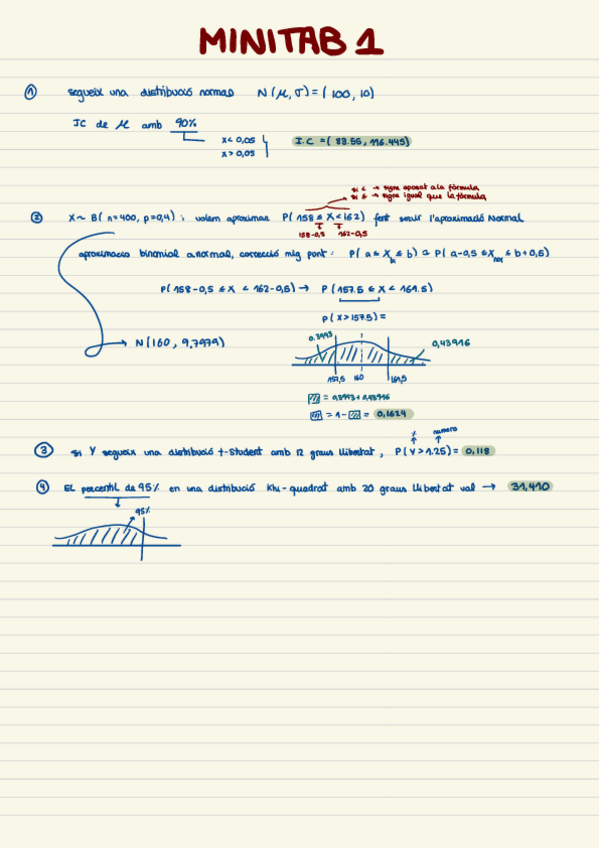 MINITAB 1
① segueix una distribució normal N(μ,σ)=(100,10)
IC de μ amb 90%
x<0,05
x>0,05
I.C =(83.55, 116.445)
si < → signe oposat a la fórmula
si ≤ → signe igual que la fórmula
② X~B(n=400, p=0,4) i volem aproximar P(158 ≤ X < 162) fent servir l'aproximació Normal
158-0,5 162-0,5
aproximacio binomial a normal, correcció mig punt: P(a ≤ X ≤ b) ≃ P(a-0,5 ≤ Xnor ≤ b+0,5)
P(158-0,5 ≤ X < 162-0,5) → P(157.5 ≤ X < 161.5)
P(X>157.5)=
N(160, 9,7979)
0,3993
0,43916
157,5 160 161,5
= 0,3993+0,43916
= 1- = 0,1624
% numero
③ Si Y segueix una distribució t-Student amb 12 graus llibertat, P(Y>1.25)= 0,118
④ EL percentil de 95% en una distribució Khi-quadrat amb 20 graus llibertat val → 31,410
95%